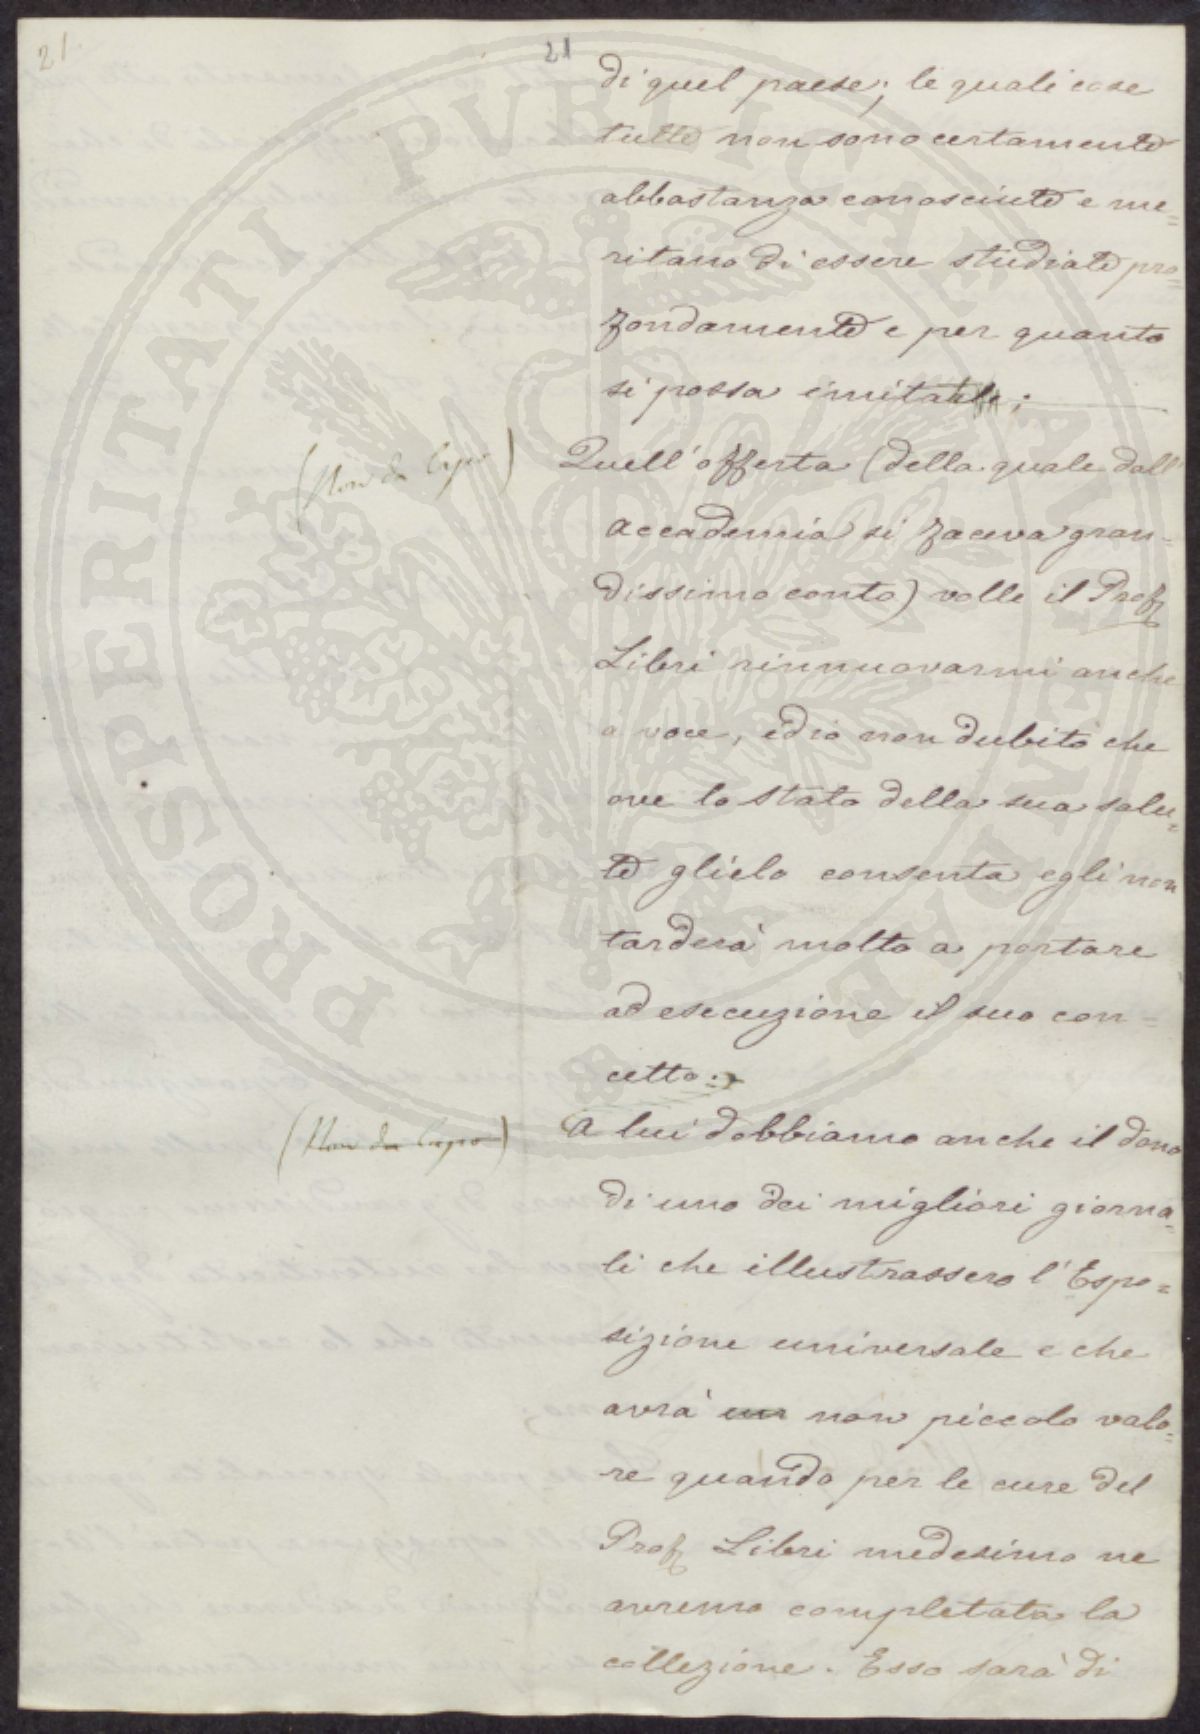 21.
21
di quel paese; le quali cose
tutte non sono certamente
abbastanza conosciute e me=
ritano di essere studiate pro=
fondamente e per quanto
si possa imitate;
(Non da Capo)
Quell'offerta (della quale dall'
Accademia si faceva gran=
dissimo conto) volle il Prof
Libri rinnuovarmi anche
a voce, ed io non dubito che
ove lo stato della sua salu=
te glielo consenta egli non
tarderà molto a portare
ad esecuzione il suo con=
cetto.
(Non da Capo)
A lui dobbiamo anche il dono
di uno dei migliori giorna=
li che illustrassero l'Espo=
sizione universale e che
avrà un non piccolo valo=
re quando per le cure del
Prof Libri medesimo ne
avremo completata la
collezione. Esso sarà di
PROSPERITATI PVBLICAE AVGENDAE